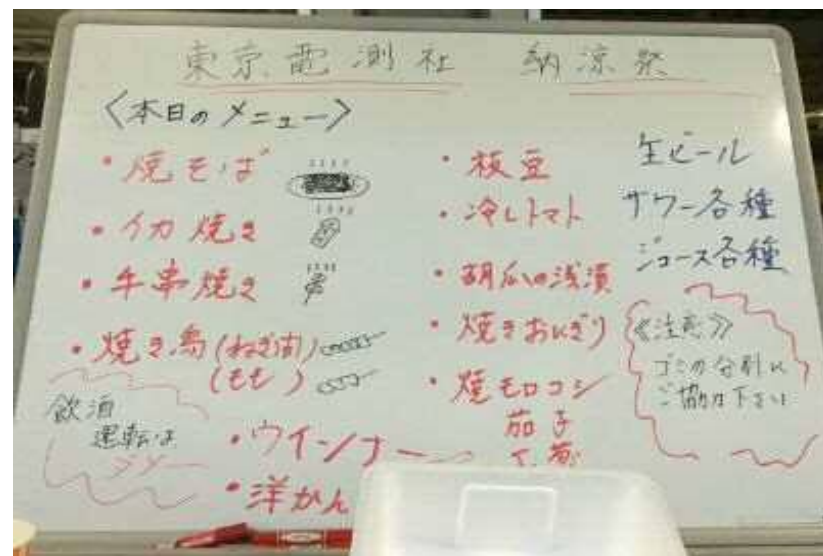 東京電測社 納涼祭
〈本日のメニュー〉
・焼そば
・イカ焼き
・牛串焼き
・焼き鳥(ねぎ間)
(もも)
・ウインナー
・洋かん
・枝豆
・冷しトマト
・胡瓜の浅漬
・焼きおにぎり
・焼モロコシ
茄子
生ビール
サワー各種
ジュース各種
《注意》
ゴミの分別に
ご協力下さい
飲酒
運転は